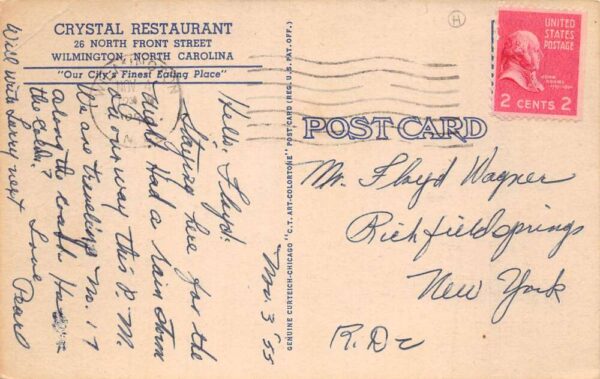 CRYSTAL RESTAURANT
26 NORTH FRONT STREET
WILMINGTON, NORTH CAROLINA
"Our City's Finest Eating Place"
Nov 3 '55
Hello, Floyd:
Staying here for the
night. Had a rain storm
all our way this P.M.
We are traveling No. 17
along the coast. How
the Colds?
Will Write Larry next
Love Pearl
GENUINE CURTEICH-CHICAGO "C.T. ART-COLORTONE" POST CARD (REG. U.S. PAT. OFF.)
H
POST CARD
UNITED
STATES
POSTAGE
JOHN
ADAMS
2 CENTS 2
Mr. Floyd Wagner
Richfield Springs
New York
R.D.